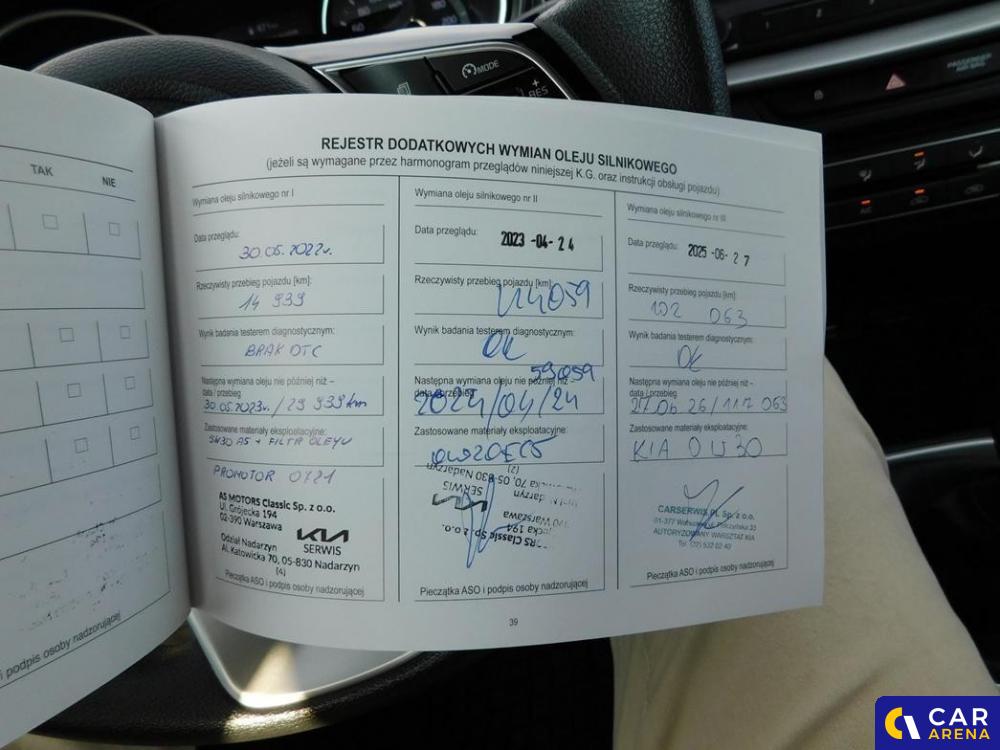 MODE
+
RES
PASSENGER
AIR BAG
A/C
TAK
NIE
i podpis osoby nadzorującej
REJESTR DODATKOWYCH WYMIAN OLEJU SILNIKOWEGO
(jeżeli są wymagane przez harmonogram przeglądów niniejszej K.G. oraz instrukcji obsługi pojazdu)
Wymiana oleju silnikowego nr I
Data przeglądu:
30.05.2022r.
Rzeczywisty przebieg pojazdu [km]:
14 939
Wynik badania testerem diagnostycznym:
BRAK DTC
Następna wymiana oleju nie później niż –
data / przebieg
30.05.2023r. / 29 939 km
Zastosowane materiały eksploatacyjne:
5W30 A5 + FILTR OLEJU
PROMOTOR 0721
AS MOTORS Classic Sp. z o.o.
Ul. Grójecka 194
02-390 Warszawa
KIA
SERWIS
Odział Nadarzyn
Al. Katowicka 70, 05-830 Nadarzyn
(4)
Pieczątka ASO i podpis osoby nadzorującej
Wymiana oleju silnikowego nr II
Data przeglądu:
2023 -04- 24
Rzeczywisty przebieg pojazdu [km]:
44059
Wynik badania testerem diagnostycznym:
OK
59059
Następna wymiana oleju nie później niż –
data / przebieg
2024/04/24
Zastosowane materiały eksploatacyjne:
0W20EC5
RS Classic Sp. z o.o.
ecka 194
Warszawa
KIA
SERWIS
Nadarzyn
icka 70, 05-830 Nadarzyn
(2)
Pieczątka ASO i podpis osoby nadzorującej
Wymiana oleju silnikowego nr III
Data przeglądu:
2025 -06- 27
Rzeczywisty przebieg pojazdu [km]:
102 063
Wynik badania testerem diagnostycznym:
OK
Następna wymiana oleju nie później niż –
data / przebieg
27 06 26/117 063
Zastosowane materiały eksploatacyjne:
KIA 0W30
CARSERWIS PL Sp. z o.o.
01-377 Warszawa, ul. Połczyńska 33
AUTORYZOWANY WARSZTAT KIA
Pieczątka ASO i podpis osoby nadzorującej
39
CAR
ARENA